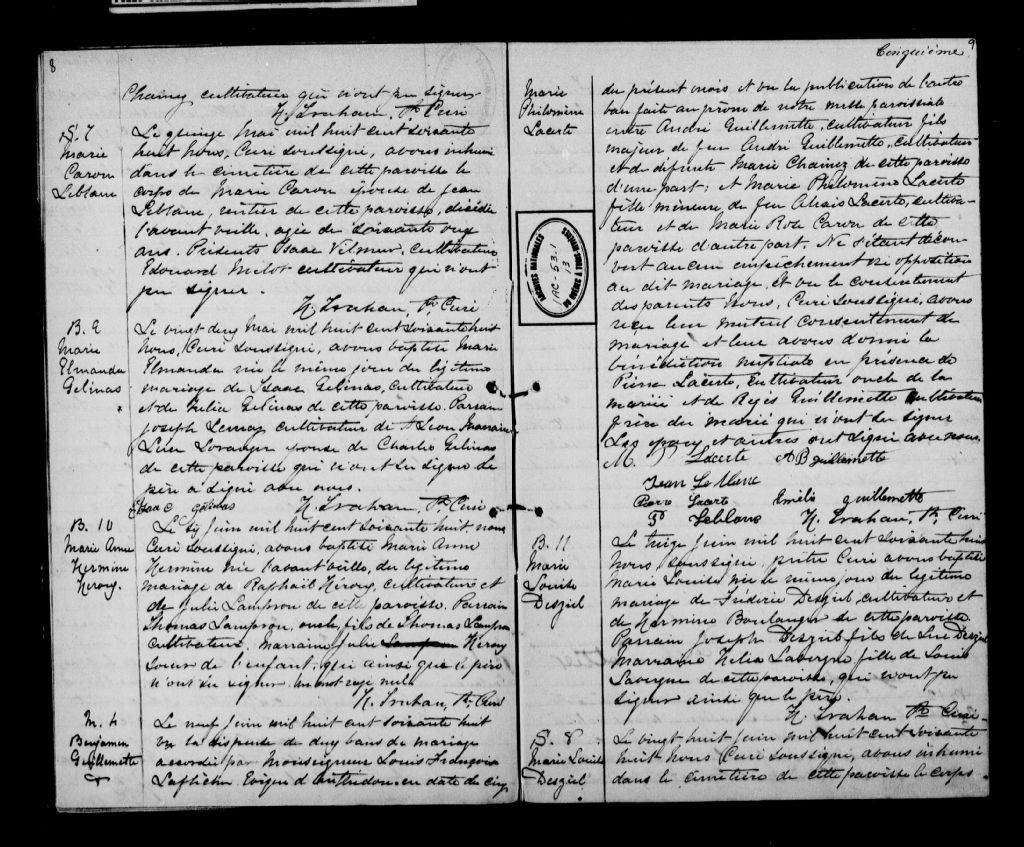 8
Chainey cultivateur qui n'ont pu signer
N. Trahan, Ptre Curé
S. 7
Marie
Caron
Leblanc
Le quinze Mai mil huit cent soixante
huit Nous, Curé soussigné, avons inhumé
dans le cimetière de cette paroisse le
corps de Marie Caron épouse de Jean
Leblanc, rentier de cette paroisse, décédée
l'avant veille, agée de soixante onze
ans. Présents Isaac Vilmur, cultivateur
Edouard Milot cultivateur qui n'ont
pu signer.
N. Trahan, Ptre Curé
B. 9
Marie
Elmanda
Gelinas
Le vingt deux Mai mil huit cent soixante huit
Nous, Curé soussigné, avons baptisé Marie
Elmanda née le même jour du légitime
mariage de Isaac Gelinas, cultivateur
et de Julie Gelinas de cette paroisse. Parrain
Joseph Lemay cultivateur de St Leon Marraine
Luce Loranger épouse de Charles Gelinas
de cette paroisse qui n'ont su signer le
père a signé avec nous.
Isaac gelinas N. Trahan, Ptre Curé
B. 10
Marie Anne
Hermine
Héroux.
Le six Juin mil huit cent soixante huit nous
Curé soussigné, avons baptisé Marie Anne
Hermine née l'avant veille, du légitime
mariage de Raphaël Héroux, cultivateur et
de Julie Lampron de cette paroisse. Parrain
Thomas Lampron, oncle, fils de Thomas Lampron
cultivateur. Marraine Julie Héroux
soeur de l'enfant, qui ainsi que le père
n'ont su signer. Un mot rayé nul.
N. Trahan, Ptre Curé
M. 4
Benjamin
Guillemette
&
Le neuf Juin mil huit cent soixante huit
vu la dispense de deux bans de mariage
accordée par Monseigneur Louis François
Laflèche Evêque d'Anthédon, en date du cinq
Cinquième 9
Marie
Philomène
Lacerte
du présent mois et vu la publication de l'autre
ban faite au prône de notre messe paroissiale
entre André Guillemette, cultivateur fils
majeur de feu André Guillemette, cultivateur
et de défunte Marie Chainez de cette paroisse
d'une part; et Marie Philomène Lacerte
fille mineure de feu Alexis Lacerte, cultiva-
teur et de Marie Rose Caron de cette
paroisse d'autre part. Ne s'étant décou
vert aucun empêchement ni opposition
au dit mariage, et vu le consentement
des parents Nous, Curé soussigné, avons
reçu leur mutuel consentement de
mariage et leur avons donné la
bénédiction nuptiale en présence de
Pierre Lacerte, cultivateur oncle de la
mariée et de Régis Guillemette cultivateur
frère du marié qui n'ont su signer
Les époux et autres ont signé avec nous.
M. P. Lacerte A B guillemette
Jean Le Blanc
Pierre Lacerte Emélie guillemette
P. Leblanc N. Trahan, Ptre Curé
ARCHIVES NATIONALES
DU QUEBEC A TROIS-RIVIERES
IAC-53.1
13
B. 11
Marie
Louise
Desziel
Le treize Juin mil huit cent soixante huit
Nous soussigné, prêtre Curé avons baptisé
Marie Louise née le même jour du légitime
mariage de Fréderic Desziel, cultivateur et
de Hermine Boulanger de cette paroisse
Parrain Joseph Desziel fils de Luc Desziel
Marraine Zélia Lavergne, fille de Louis
Lavergne de cette paroisse, qui n'ont pu
signer ainsi que le père.
N. Trahan Ptre Curé
S. 8
Marie Louise
Desziel
Le vingt huit Juin mil huit cent soixante
huit Nous Curé soussigné, avons inhumé
dans le cimetière de cette paroisse le corps